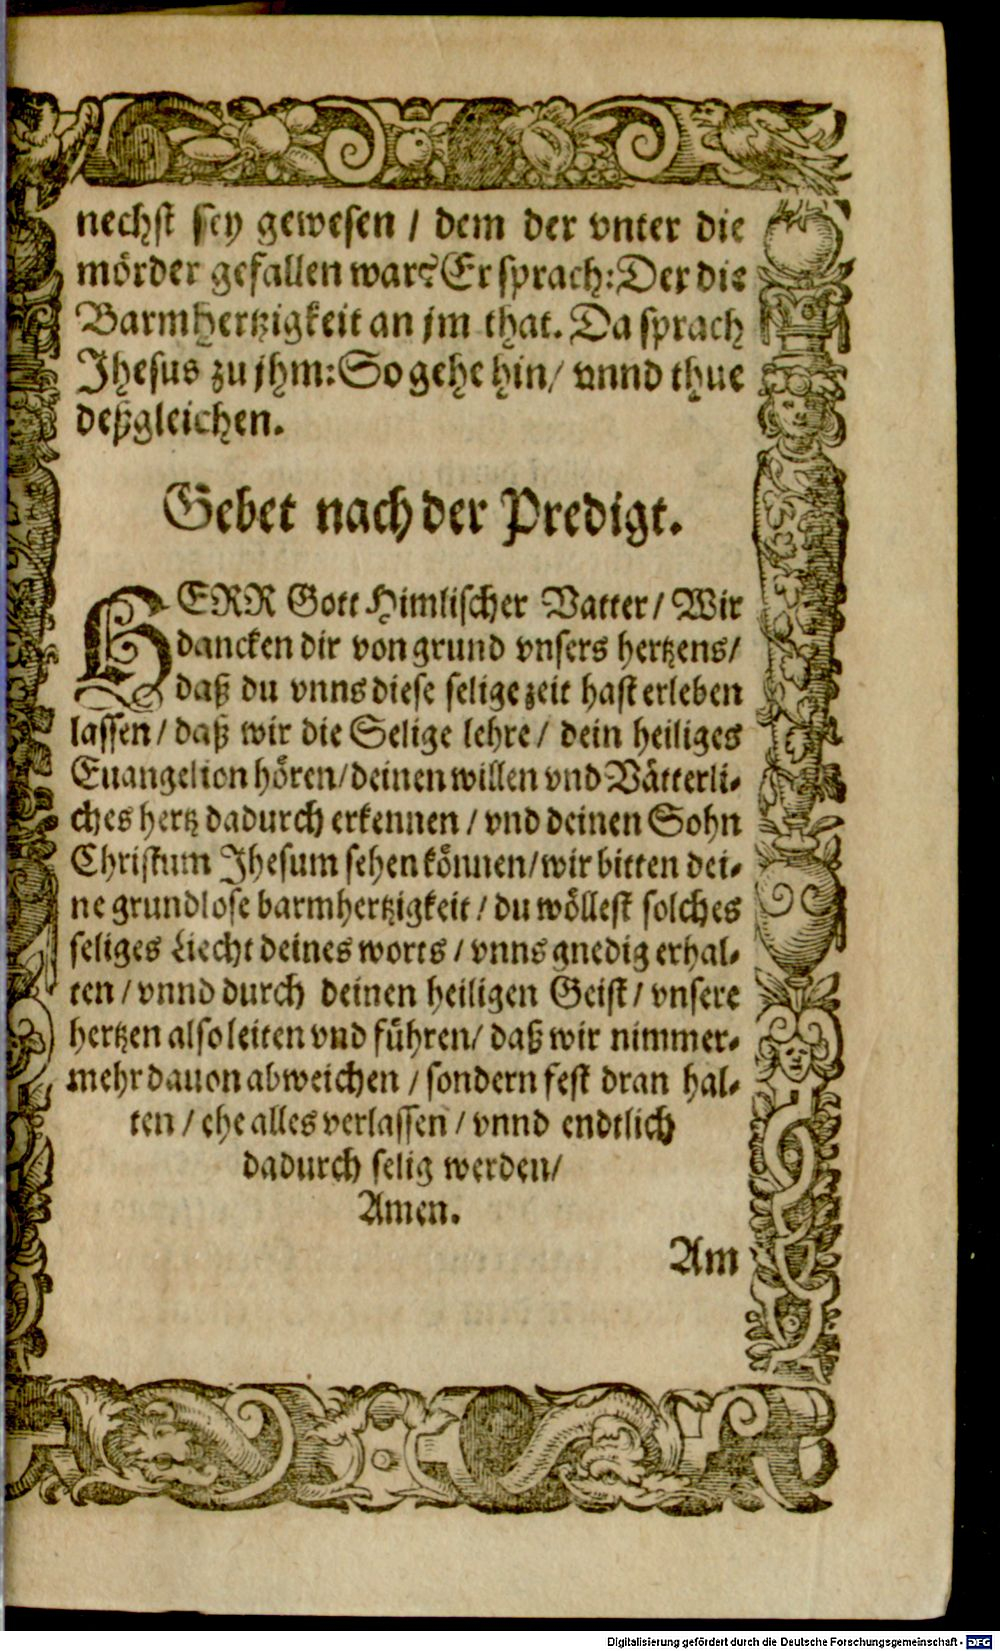 nechst sey gewesen / dem der vnter die
mörder gefallen war? Er sprach: Der die
Barmhertzigkeit an jm that. Da sprach
Jhesus zu jhm: So gehe hin / vnnd thue
deßgleichen.
Gebet nach der Predigt.
HERR Gott Himlischer Vatter / Wir
dancken dir von grund vnsers hertzens /
daß du vnns diese selige zeit hast erleben
lassen / daß wir die Selige lehre / dein heiliges
Euangelion hören / deinen willen vnd Vätterli-
ches hertz dadurch erkennen / vnd deinen Sohn
Christum Jhesum sehen können / wir bitten dei-
ne grundlose barmhertzigkeit / du wöllest solches
seliges Liecht deines worts / vnns gnedig erhal-
ten / vnnd durch deinen heiligen Geist / vnsere
hertzen also leiten vnd führen / daß wir nimmer-
mehr dauon abweichen / sondern fest dran hal-
ten / ehe alles verlassen / vnnd endtlich
dadurch selig werden /
Amen.
Am
Digitalisierung gefördert durch die Deutsche Forschungsgemeinschaft - DFG